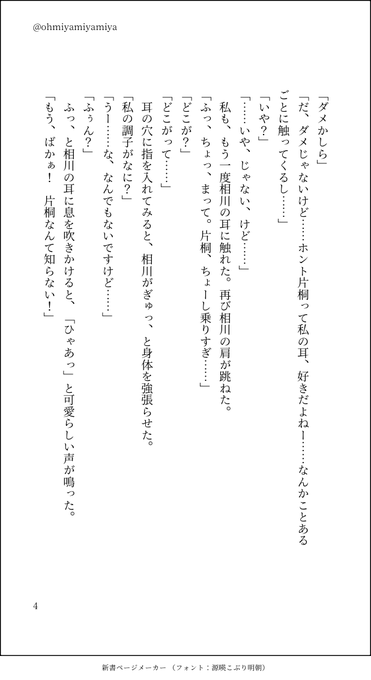 @ohmiyamiyamiya
「ダメかしら」
「だ、ダメじゃないけど……ホント片桐って私の耳、好きだよねー……なんかことある
ごとに触ってくるし……」
「いや？」
「……いや、じゃない、けど……」
私も、もう一度相川の耳に触れた。再び相川の肩が跳ねた。
「ふっ、ちょっ、まって。片桐、ちょーし乗りすぎ……」
「どこが？」
「どこがって……」
耳の穴に指を入れてみると、相川がぎゅっ、と身体を強張らせた。
「私の調子がなに？」
「うー……な、なんでもないですけど……」
「ふぅん？」
ふっ、と相川の耳に息を吹きかけると、「ひゃあっ」と可愛らしい声が鳴った。
「もう、ばかぁ！　片桐なんて知らない！」
4
新書ページメーカー（フォント：源暎こぶり明朝）